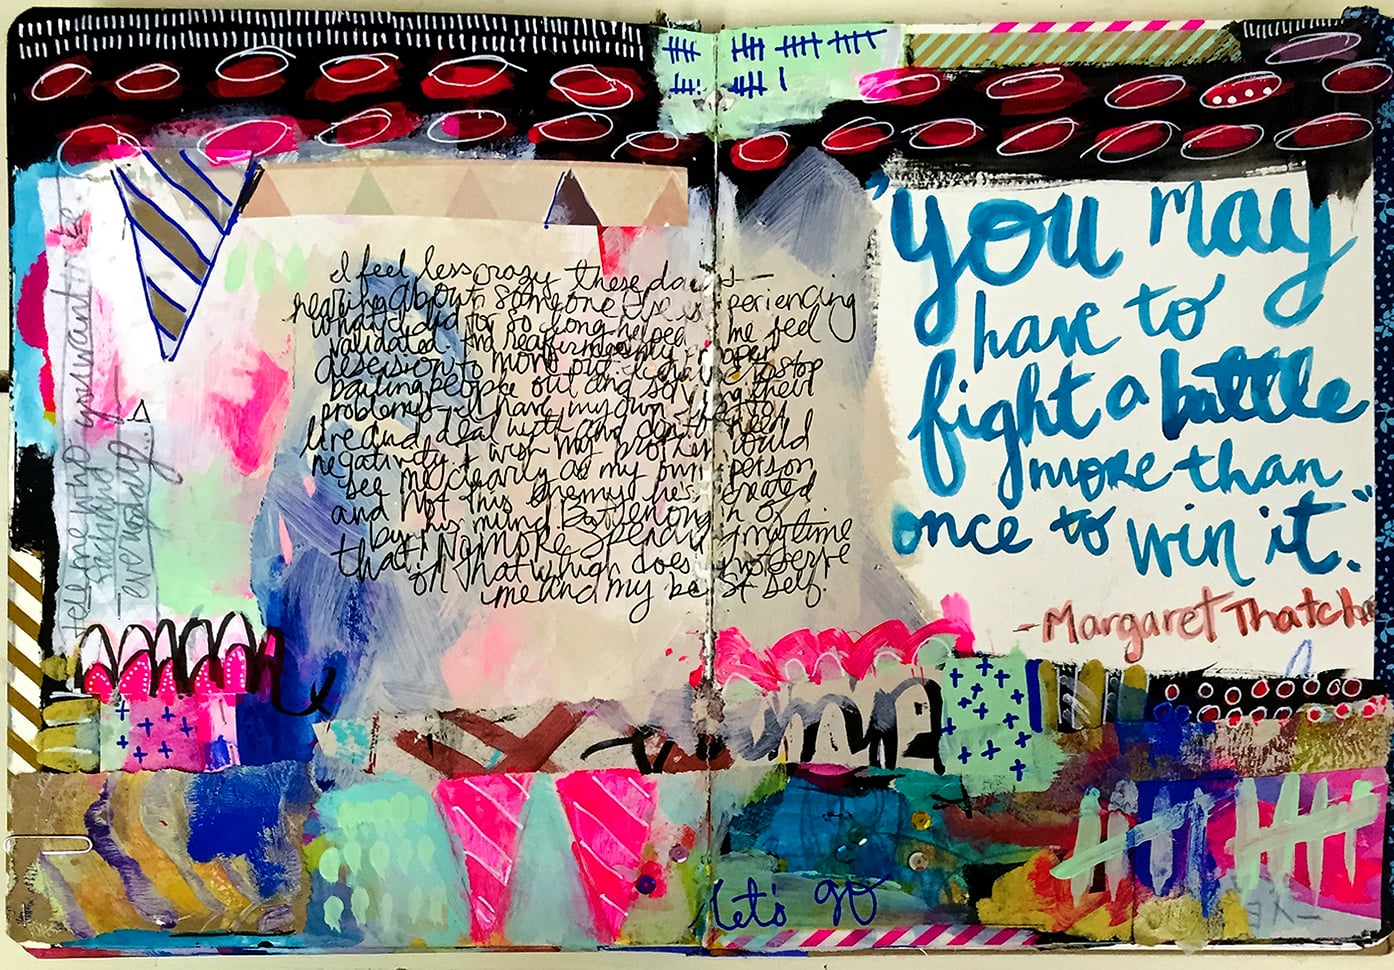 I feel less crazy these days —
hearing about someone else experiencing
what I did for so long helped me feel
validated. And reaffirmed my
decision to move out.
bailing people out and solving their
problems. I have my own
live and deal with and don't need
negativity. I wish my could
see me clearly as my own person
and not this enemy he's created
by his mind. But enough of
that! No more spending my time
on that which does not serve
me and my best self.
tell me who you want
everything...
"you may
have to
fight a battle
more than
once to win it."
-Margaret Thatche
let's go